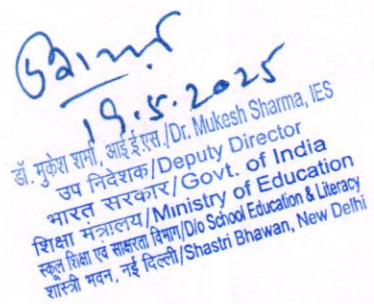 19.5.2025
डॉ. मुकेश शर्मा, आई.ई.एस./Dr. Mukesh Sharma, IES
उप निदेशक/Deputy Director
भारत सरकार/Govt. of India
शिक्षा मंत्रालय/Ministry of Education
स्कूल शिक्षा एवं साक्षरता विभाग/D/o School Education & Literacy
शास्त्री भवन, नई दिल्ली/Shastri Bhawan, New Delhi